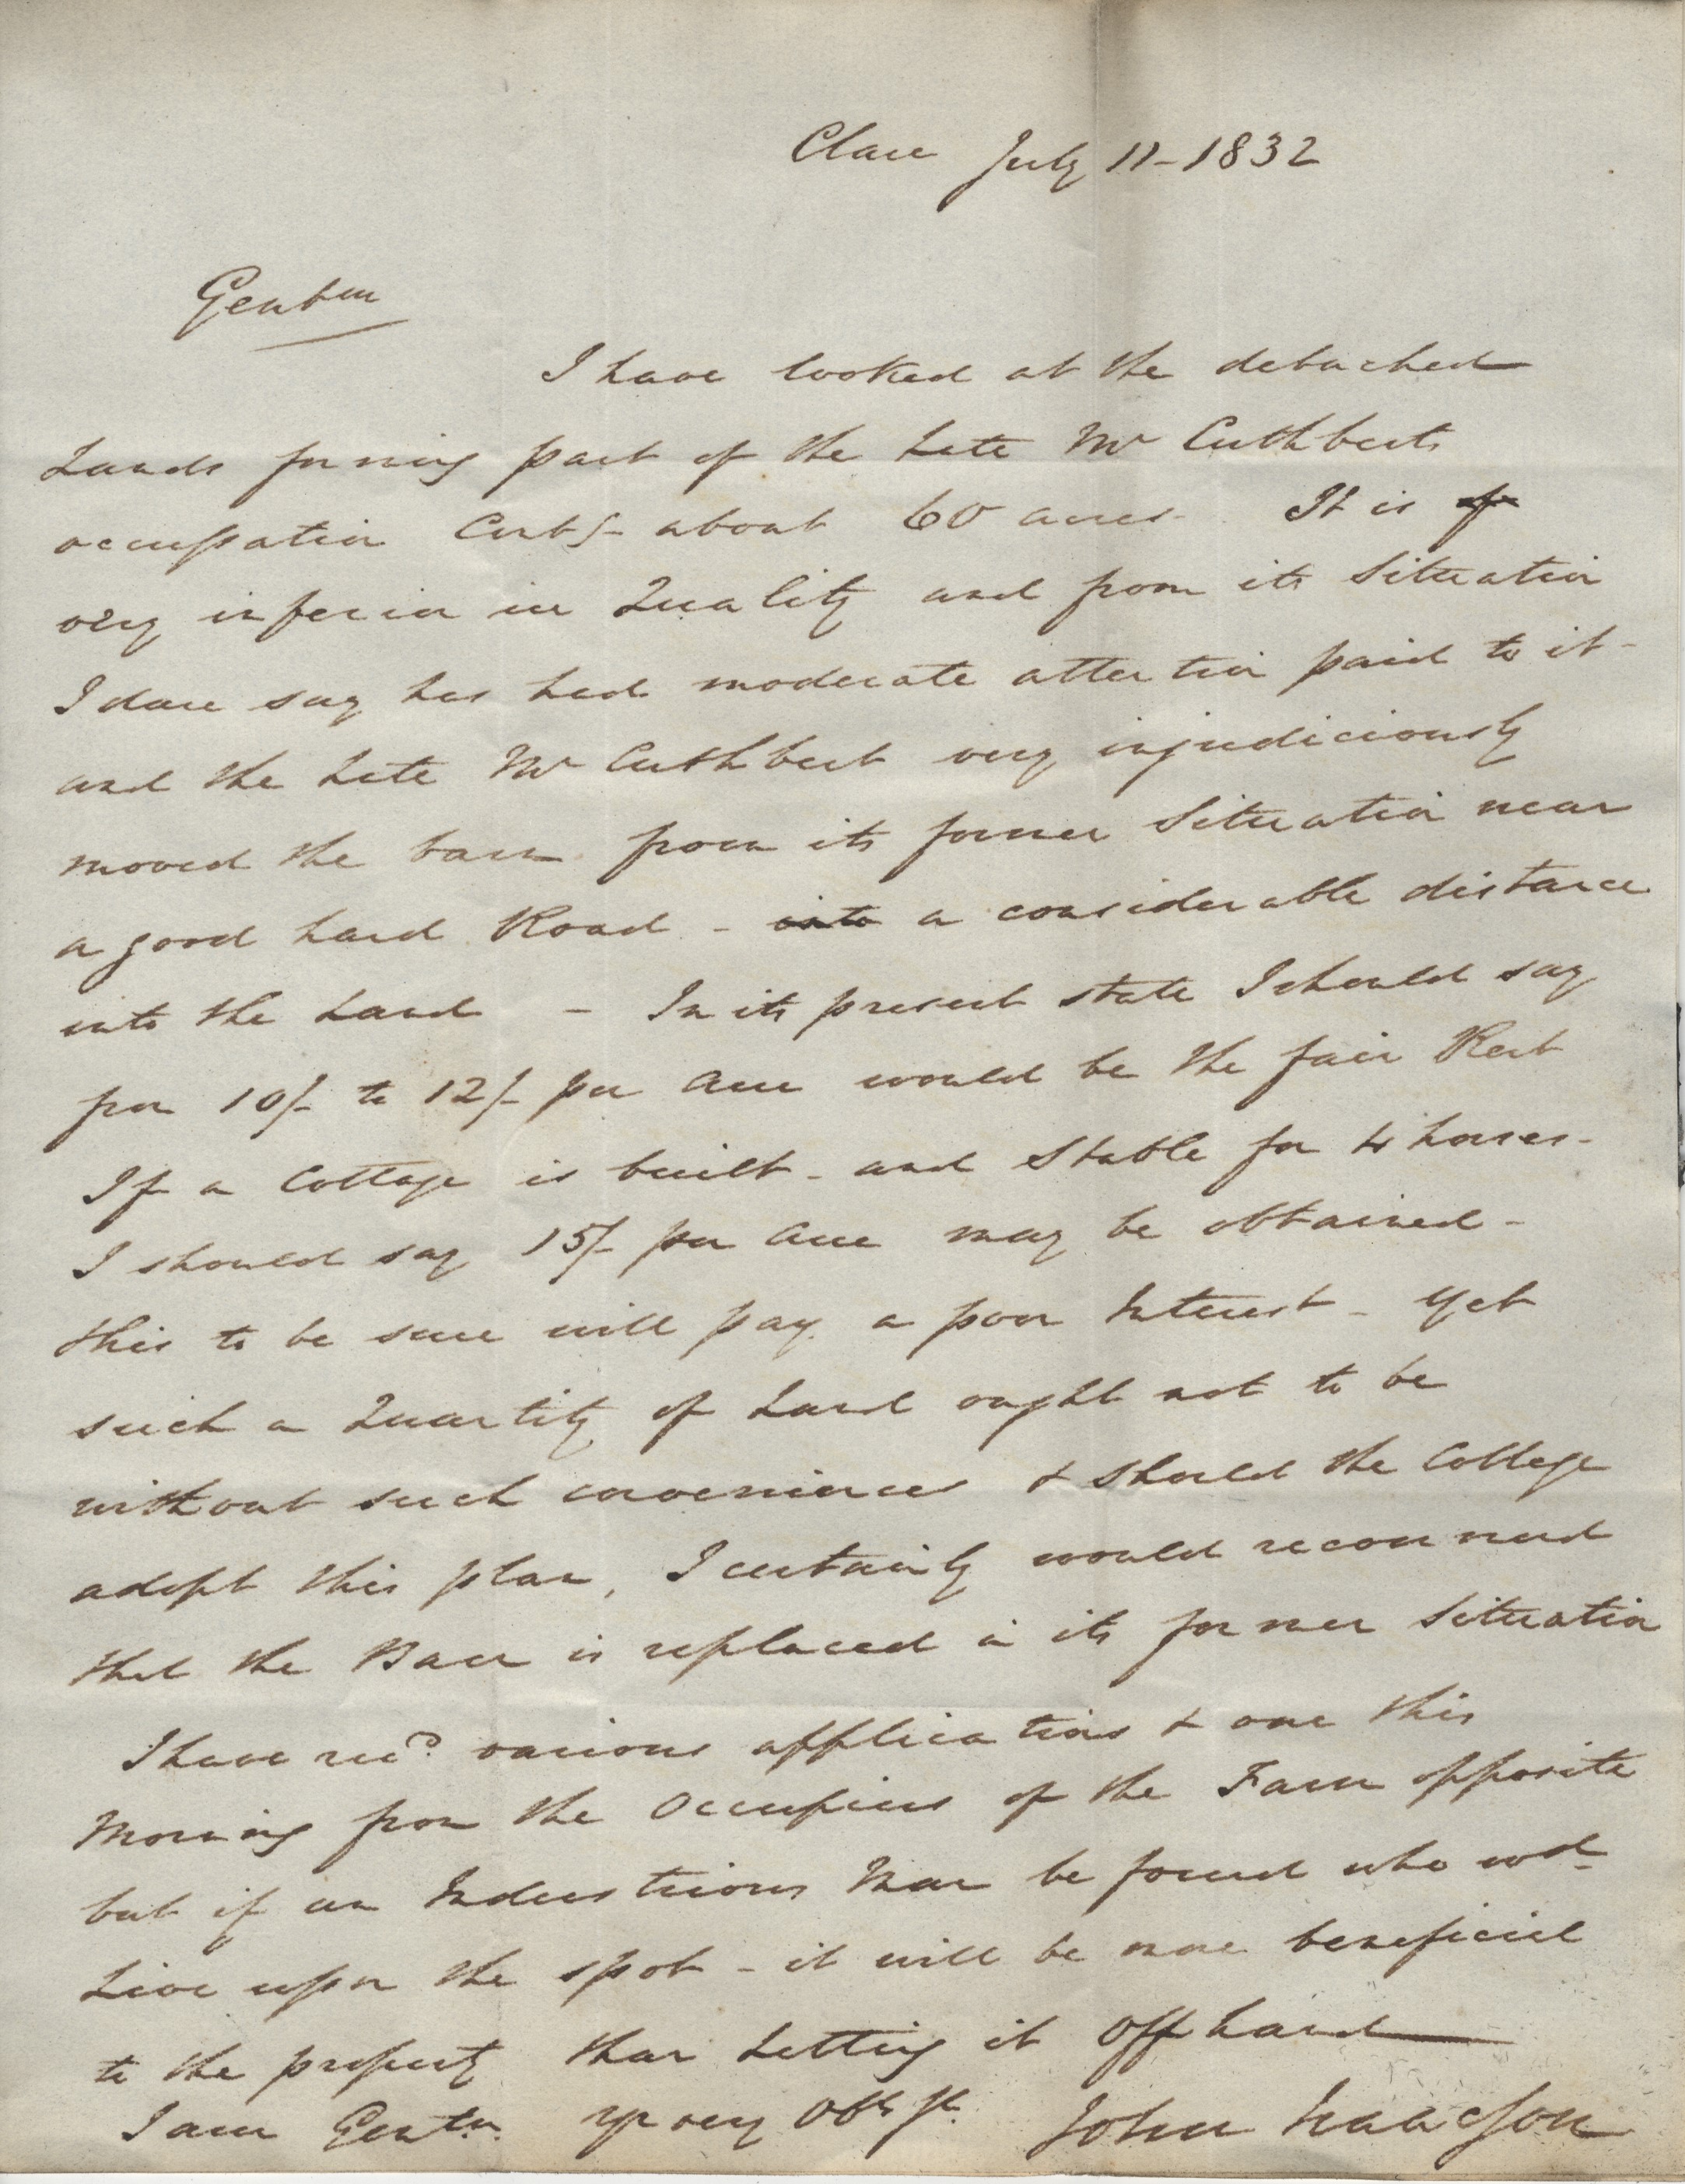 Clare July 11-1832
Gentmn
I have looked at the detached
Lands forming part of the Late Mr Cuthberts
occupation Contg- about 60 acres - It is
very inferior in Quality and from its Situation
I dare say has had moderate attention paid to it-
and the Late Mr Cuthbert very injudiciously
moved the barn from its former Situation near
a good hard Road - into a considerable distance
into the Land - In its present state I should say
from 10/- to 12/- per Acre would be the fair Rent
If a Cottage is built - and Stable for 4 horses-
I should say 15/- per Acre may be obtained -
this to be sure will pay a poor Interest - yet
such a Quantity of Land ought not to be
without such conveniences & should the College
adopt this plan, I certainly would recommend
that the Barn is replaced in its former Situation
I have recd. various applications & one this
Morning from the Occupiers of the Farm opposite
but if an Industrious Man be found who wd-
Live upon the spot - it will be more beneficial
to the property than Letting it Off hand
I am Gentn. yr very Obt St. John Isaacson